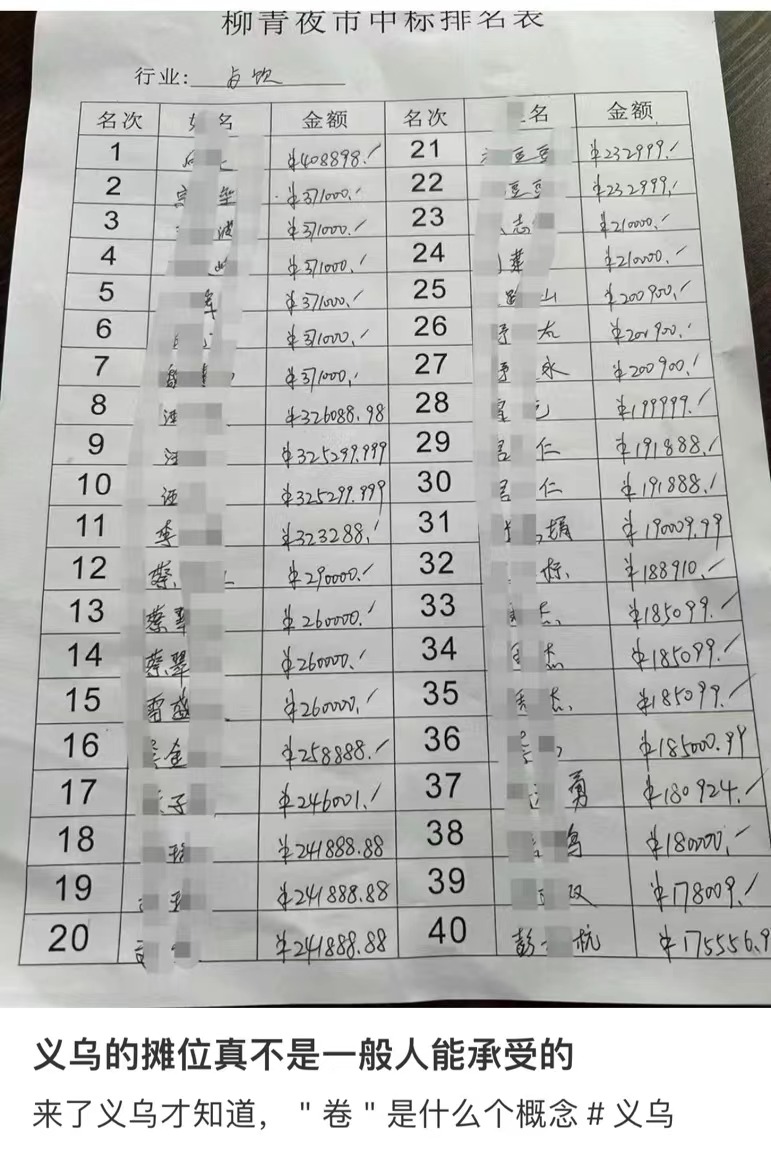 柳青夜市中标排名表
行业: 卤饮
名次 名 金额 名次 名 金额
1 ¥408898./ 21 豆豆 ¥232999./
2 ¥371000./ 22 豆豆 ¥232999./
3 波 ¥371000./ 23 志 ¥210000./
4 ¥371000./ 24 華 ¥210000./
5 军 ¥371000./ 25 山 ¥200900./
6 ¥371000./ 26 太 ¥200900./
7 ¥371000./ 27 永 ¥200900./
8 汪 ¥326088.98 28 ¥199999./
9 汪 ¥325299.999 29 吕 仁 ¥191888./
10 汪 ¥325299.999 30 吕 仁 ¥191888./
11 李 ¥323288./ 31 娟 ¥190009.99
12 蔡 ¥290000./ 32 标 ¥188910./
13 蔡翠 ¥260000./ 33 杰 ¥185099./
14 蔡翠 ¥260000./ 34 杰 ¥185099./
15 雷 ¥260000./ 35 杰 ¥185099./
16 金 ¥258888./ 36 ¥185000.99
17 子 ¥246001./ 37 勇 ¥180924./
18 ¥241888.88 38 ¥180000./
19 ¥241888.88 39 双 ¥178009./
20 ¥241888.88 40 彭 杭 ¥175556.9
义乌的摊位真不是一般人能承受的
来了义乌才知道，"卷"是什么个概念#义乌